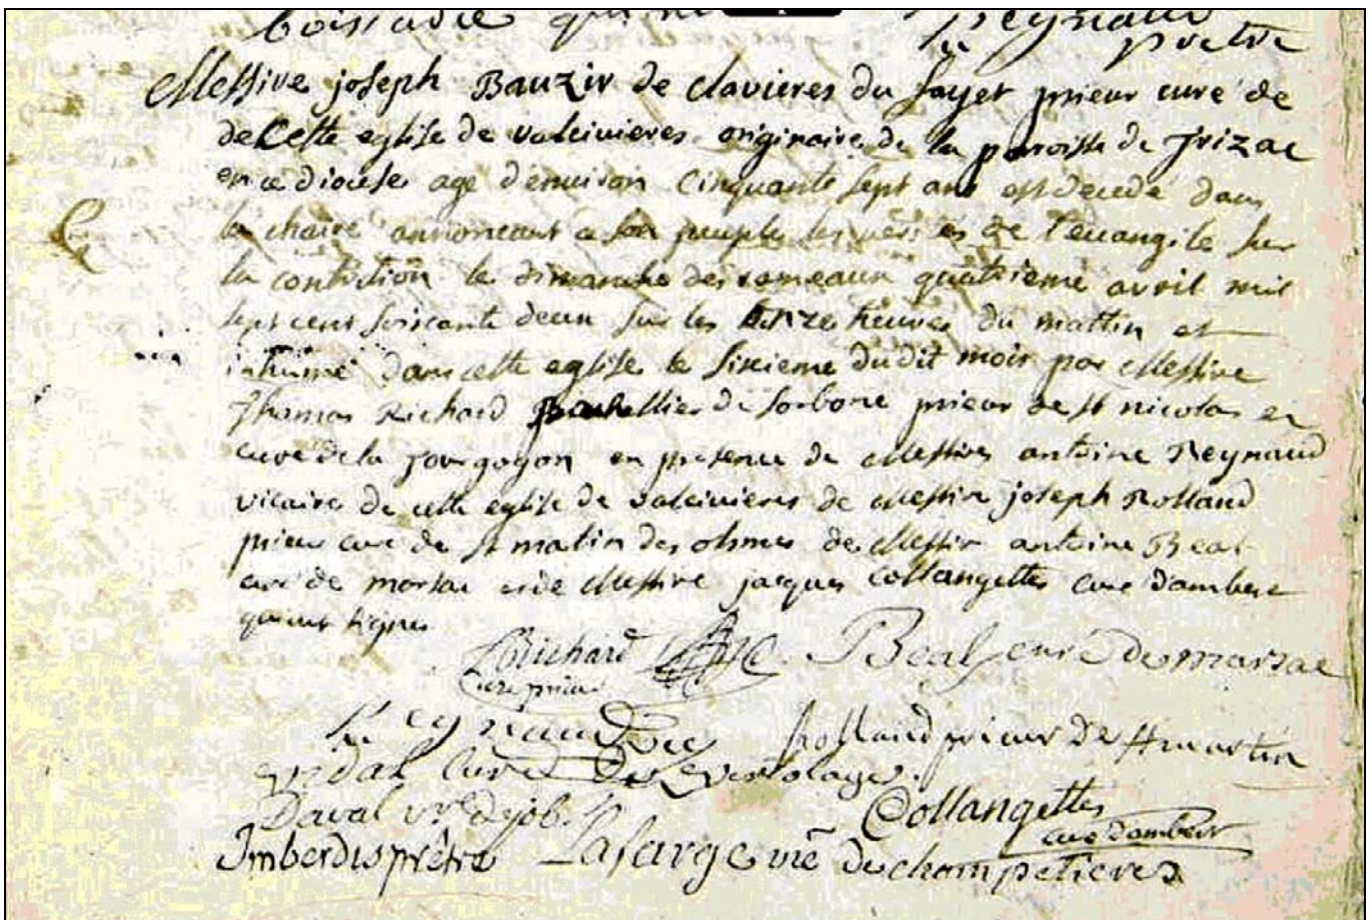 Boistadie qui ne Reynaud
prêtre
Messire joseph Bauzir de clavieres du fayet prieur curé de
de Cette eglise de valcivieres originaire de la paroisse de Trizac
en ce diocese agé d'environ Cinquante sept ans est decedé dans
la chaire annoncant a son peuple les verités de l'euangile sur
la contrition le dimanche des rameaux quatrieme avril mil
sept cent soixante deux sur les onze heures du mattin et
inhumé dans cette eglise le sixieme dudit mois par Messire
Thomas Richard Bachellier de sorbone prieur de st nicolas et
curé de la fourgogon en presence de Messires antoine Reynaud
vicaire de cette eglise de valcivieres de Messire joseph Rolland
prieur curé de st matin des olmes de Messire antoine Beal
curé de marsac et de Messire jacques Collangettes curé d'ambert
qui ont signes
Richard Beal curé de marsac
curé prieur
Reynaud vic Rolland prieur de st martin
curé de
Daval vre de job. Collangettes
curé d'ambert
Imberdis prêtre Lafarge vre de champetieres